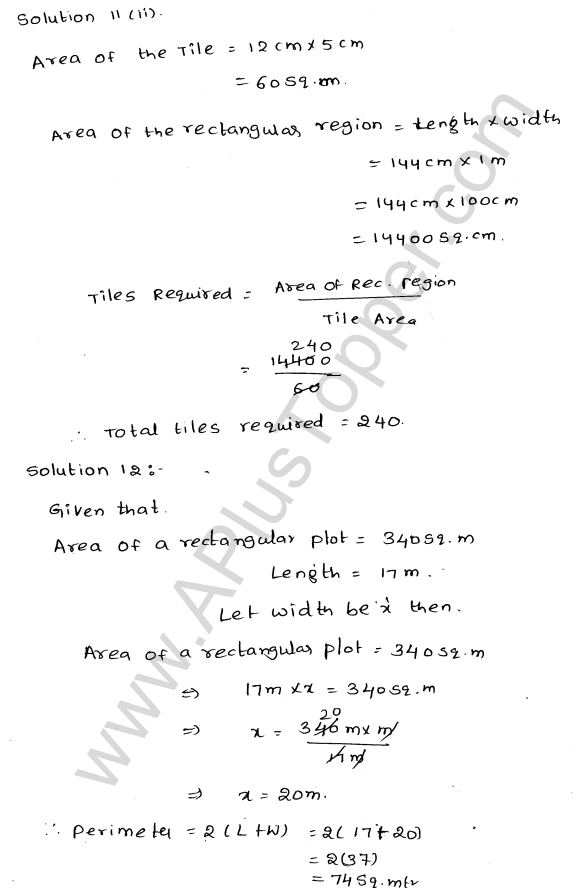 Solution 11(ii).
Area of the Tile = 12cm x 5cm
= 60 sq.cm.
Area of the rectangular region = Length x width
= 144cm x 1m
= 144cm x 100cm
= 14400 sq.cm.
Tiles Required = Area of Rec. region
Tile Area
240
= 14400
60
∴ Total tiles required = 240.
Solution 12:-
Given that.
Area of a rectangular plot = 340 sq.m
Length = 17m.
Let width be 'x' then.
Area of a rectangular plot = 340 sq.m
⇒ 17m x x = 340 sq.m
20
⇒ x = 340 m x m
17 m
⇒ x = 20m.
∴ Perimeter = 2(L+W) = 2(17+20)
= 2(37)
= 74 sq.mtr
www.APlusTopper.com